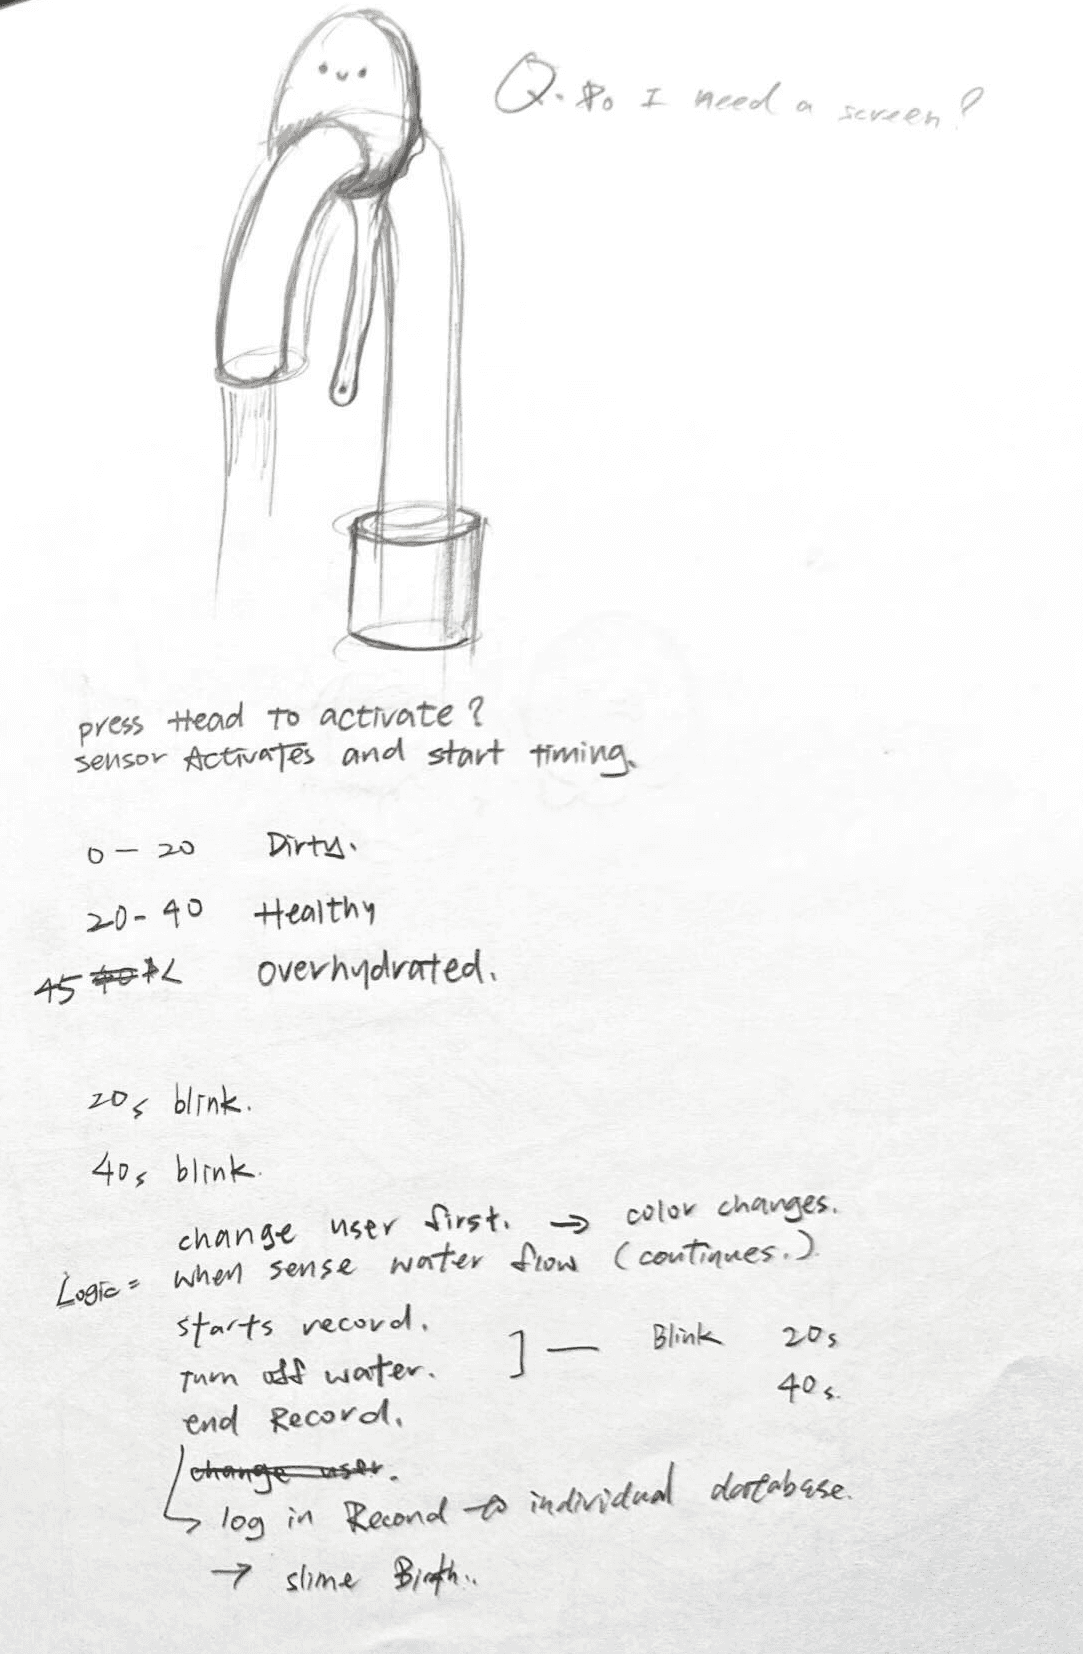 Q. Do I need a screen?
press Head to activate?
sensor Activates and start timing.
0 - 20 Dirty.
20 - 40 Healthy
45 < overhydrated.
20s blink.
40s blink.
change user first. → color changes.
Logic = when sense water flow (continues.)
starts record.
Turn off water. ] — Blink 20s
40s.
end Record.
change user.
log in Record to individual database.
→ slime Birth..